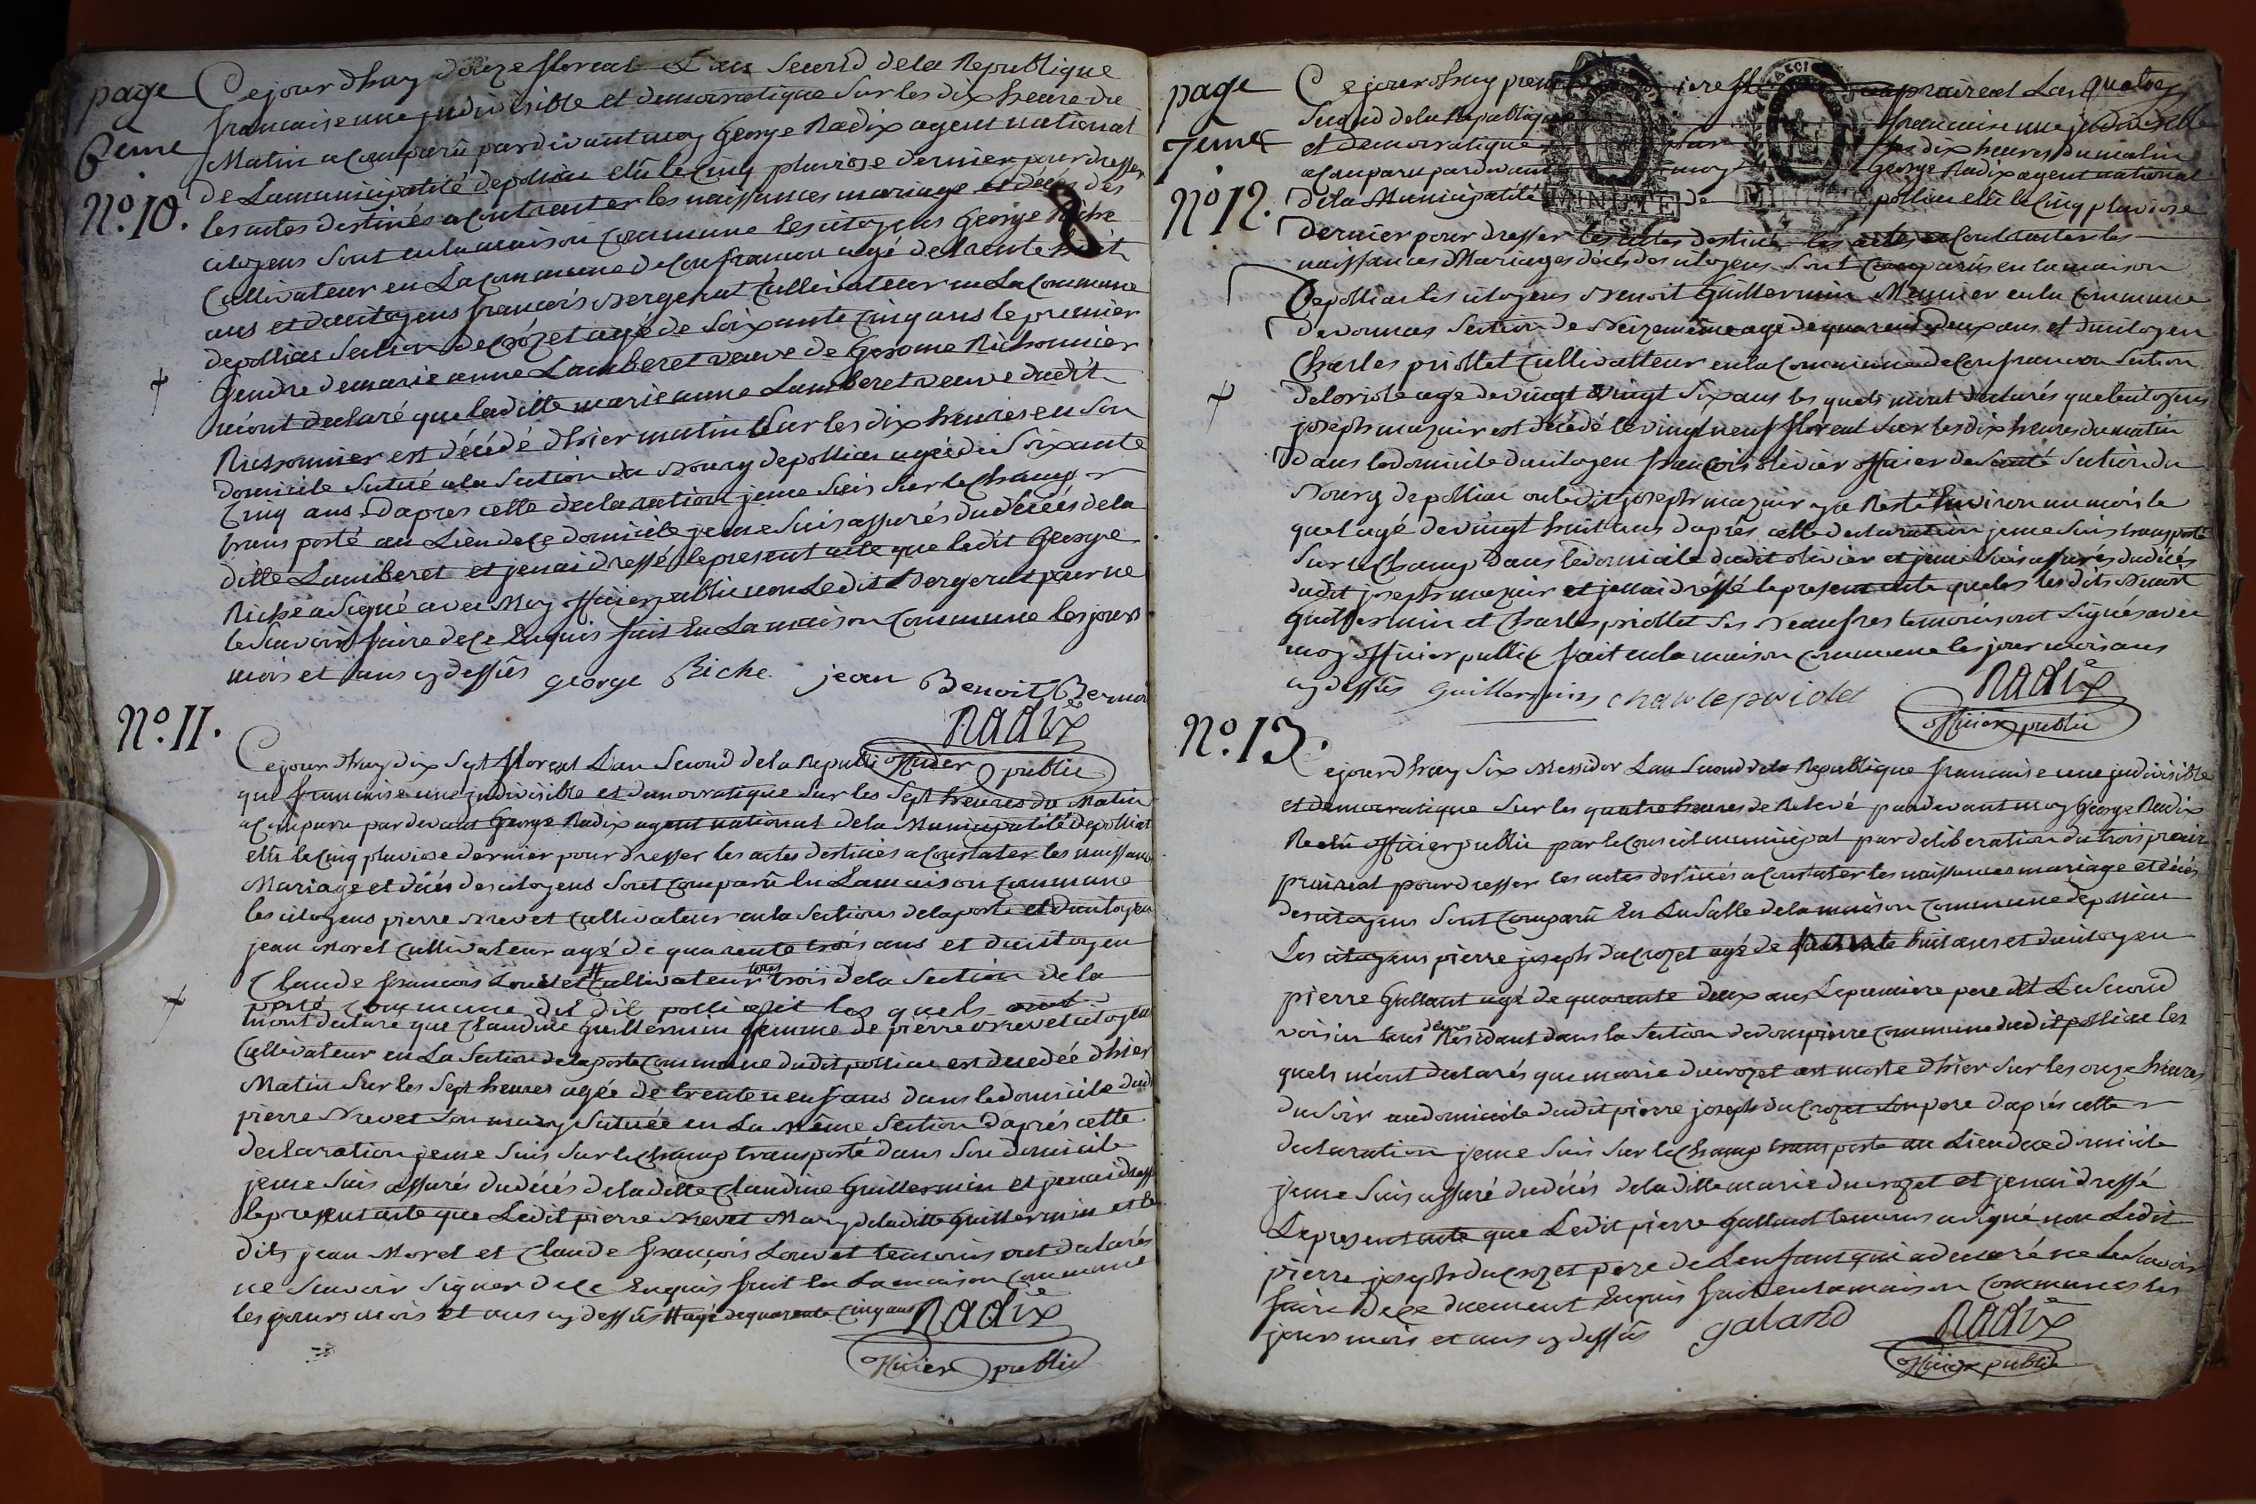 page
6eme
No. 10.
Cejourdhuy douze floreal Lan Second dela Republique
francaise une jndivisible et democratique Sur les dix heure du
Matin a Comparû pardevant moy George Radix agent national
de Lamunicipalité depolliac elû le Cinq pluviose dernier pour dresser
les actes destinés a Contracter les naissances mariage et décés des
citoyens Sont enlamaison Commune les citoyens George Riche
Cullivateur en La Commune de Confrancon agé de trente huit
ans et ducitoyens francois Bergerat Cullivateur en La Commune
depolliac Section de Crozet agé de Soixante Cinq ans le premier
Gendre demarie anne Lamberet veuve de Gerome Richonnier
m'ont declaré que laditte marie anne Lamberet veuve dudit
Richonnier est décédé dhier matin Sur les dix heures en Son
domicile Situé ala Section du Bourg depolliac agée de Soixante
Cinq ans. Dapres cette declaration jeme Suis Surlechamp
transporté au Lieu dece domicile jeme Suis assurés dudécés dela
ditte Lamberet et jenai dressé lepresent acte que ledit George
Riche a Signé avec Moy officier public non Ledit Bergerat pour ne
le Savoir faire dece Enquis fait En La maison Commune les jours
mois et ans cy dessus george Riche jean Benoit
Radix
officier public
No. 11.
Cejourdhuy dix Sept floreal Lan Second dela Republi
que francaise une jndivisible et democratique Sur les Sept heures du Matin
a Comparu pardevant George Radix agent national dela Municipalité depolliat
elû le Cinq pluviose dernier pour dresser les actes destinés a Constater les naissance
Mariage et décés descitoyens Sont Comparû En Lamaison Commune
les citoyens pierre Brevet Cullivateur enla Sections delaporte et ducitoyen
jean Morel Cullivateur agé de quarente trois ans et ducitoyen
Claude francois Louvet # Cullivateur tous trois dela Section de la
porte Commune du dit polliat les quels
mont declare que Claudine Guillermin femme de pierre Brevet citoyen
Cullivateur en La Section delaporte Commune dudit polliac est decedée dhier
Matin Sur les Sept heures agée de trente neuf ans dans ledomicile dudit
pierre Brevet Son mary Située en La Même Section Daprés cette
declaration jeme Suis Surlechamp transporté dans Son domicile
jeme Suis assurés dudécés deladitte Claudine Guillermin et jenai dressé
lepressent acte que Ledit pierre Brevet Mary deladitte Guillermin et les
dits jean Morel et Claude François Louvet temoins ont declarés
ne Savoir Signer dece Enquis fait En La maison Commune
les jours mois et ans cy dessus # agé dequarente Cinq ans Radix
officier public
page
7eme
No 12.
Cejourdhuy premier praireal Lan quatre
Second dela Republique francaise une jndivisible
et democratique Sur les dix heures du matin
a Comparu pardevant moy George Radix agent national
dela Municipalité de polliac elû le Cinq pluviose
Dernier pour dresser les actes destinés les actes a Contracter les
naissances Mariages décés des citoyens Sont Comparûs en lamaison
Depolliat les citoyens Benoit Guillermin Meunier enla Commune
devonnas Section de Neizerime agé dequarente deux ans et ducitoyen
Charles priollet Cullivatteur enla Commune de Confrancon Section
deloriole age devingt vingt Six ans les quels mont declarés quelecitoyens
joseph mazuir est décédé levingt neuf floreal Sur les dix heures dumatin
Dans ledomicile ducitoyen francois olivier officier de Santé Section du
Bourg depolliac ouledit joseph mazuir ya Resté Environ un mois le
quel agé devingt huit ans daprés cette declaration jeme Suis transporté
Sur le Champ Dans ledomicile dudit olivier et jeme Suis assurés dudécés
dudit joseph mazuir et jenai dréssé lepresent acte que les dits Benoit
Guillermin et Charles priollet Ses Beaufrés temoins ont Signés avec
moy officier publix fait enla maison Commune les jour mois ans
cy dessus Guillermin charlepriolet Radix
officier public
No. 13.
Cejourdhuy Six Messidor Lan Second dela Republique francaise une jndivisible
et democratique Sur les quatre heures de Relevé pardevant moy George Radix
Reelû officier public par le Conseil municipal par deliberation du trois prair
prairial pour dresser les actes destinés a Constater les naissances mariage et décés
des citoyens Sont Comparû En La Salle dela maison Commune depolliac
Les citoyens pierre joseph du Crozet agé de huit ans et ducitoyen
pierre Gallant agé de quarente deux ans Le premiere pere et Le Second
voisin tous deux Residant dans la Section dedompierre Commune dudit polliac les
quels m'ont declarés que marie ducrozet est morte dhier Sur les onze heures
du Soir audomicile dudit pierre joseph du Crozet Son pere daprés cette
declaration jeme Suis Sur le Champ transporté au Lieu dece domicile
jeme Suis assuré dudécés deladitte marie ducrozet et jenai dressé
Le present acte que Ledit pierre Gallant temoins a Signé non Ledit
pierre joseph du Crozet pere de Lenfant qui a declaré ne le Savoir
faire dece duement Enquis fait enlamaison Commune les
jours mois et ans cy dessus galand Radix
officier public